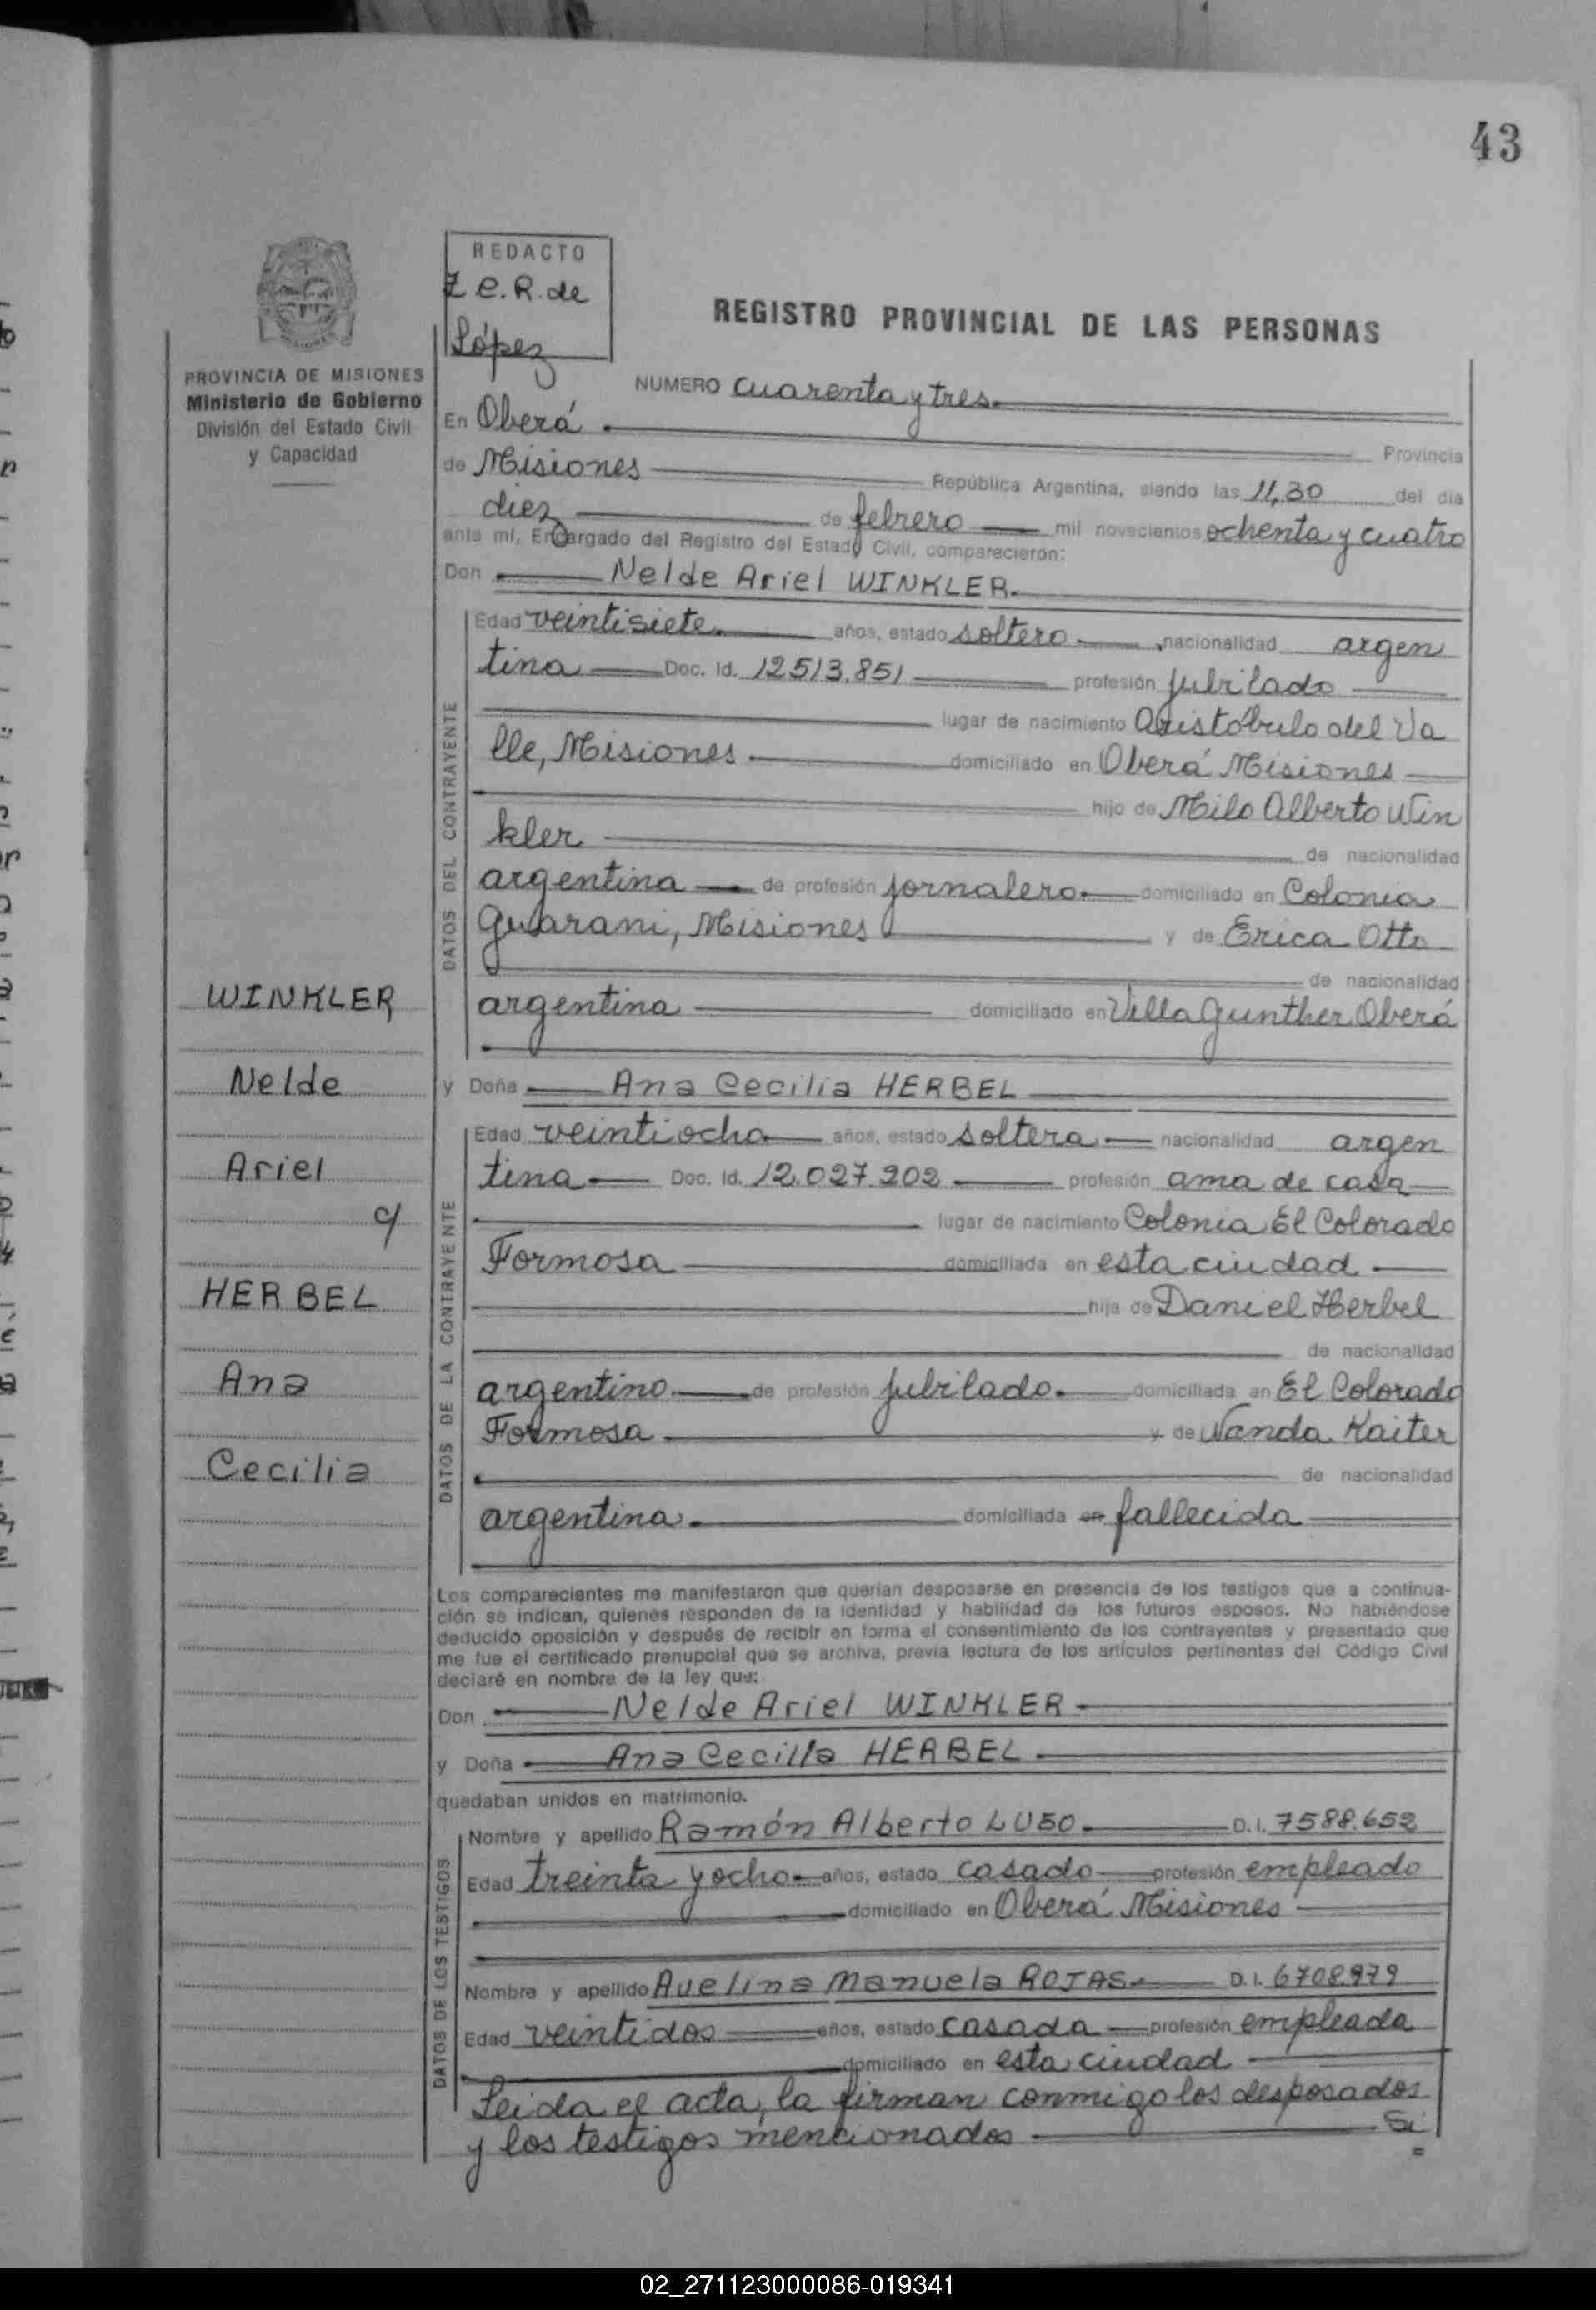 43
REDACTO
Z C. R. de
López
REGISTRO PROVINCIAL DE LAS PERSONAS
PROVINCIA DE MISIONES
Ministerio de Gobierno
División del Estado Civil
y Capacidad
NUMERO cuarenta y tres
En Oberá Provincia
de Misiones República Argentina, siendo las 11,30 del día
diez de febrero mil novecientos ochenta y cuatro
ante mí, Encargado del Registro del Estado Civil, comparecieron:
Don Nelde Ariel WINKLER
DATOS DEL CONTRAYENTE
Edad veintisiete años, estado soltero, nacionalidad argen
tina Doc. Id. 12513.851 profesión jubilado
lugar de nacimiento Aristóbulo del Va
lle, Misiones domiciliado en Oberá Misiones
hijo de Milo Alberto Win
kler de nacionalidad
argentina de profesión jornalero domiciliado en Colonia
Guarani, Misiones y de Erica Otto
de nacionalidad
argentina domiciliado en Villa Gunther Oberá
y Doña Ana Cecilia HERBEL
DATOS DE LA CONTRAYENTE
Edad veintiocho años, estado soltera nacionalidad argen
tina Doc. Id. 12.027.202 profesión ama de casa
lugar de nacimiento Colonia El Colorado
Formosa domiciliada en esta ciudad
hija de Daniel Herbel
de nacionalidad
argentino de profesión jubilado domiciliada en El Colorado
Formosa y de Wanda Kaiter
de nacionalidad
argentina domiciliada en fallecida
WINKLER
Nelde
Ariel
c/
HERBEL
Ana
Cecilia
Los comparecientes me manifestaron que querían desposarse en presencia de los testigos que a continua-
ción se indican, quienes responden de la identidad y habilidad de los futuros esposos. No habiéndose
deducido oposición y después de recibir en forma el consentimiento de los contrayentes y presentado que
me fue el certificado prenupcial que se archiva, previa lectura de los artículos pertinentes del Código Civil
declaré en nombre de la ley que:
Don Nelde Ariel WINKLER
y Doña Ana Cecilia HERBEL
quedaban unidos en matrimonio.
DATOS DE LOS TESTIGOS
Nombre y apellido Ramón Alberto LUBO D.I. 7588.652
Edad treinta y ocho años, estado casado profesión empleado
domiciliado en Oberá Misiones
Nombre y apellido Avelina Manuela ROJAS D.I. 6708979
Edad veintidos años, estado casada profesión empleada
domiciliado en esta ciudad
Leida el acta, la firman conmigo los desposados
y los testigos mencionados
02_271123000086-019341